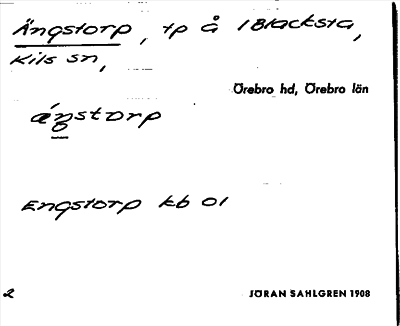 Ängstorp, tp å Blacksta,
Kils sn,
Örebro hd, Örebro län
áŋstorp
Engstorp kb 01
2
JÖRAN SAHLGREN 1908